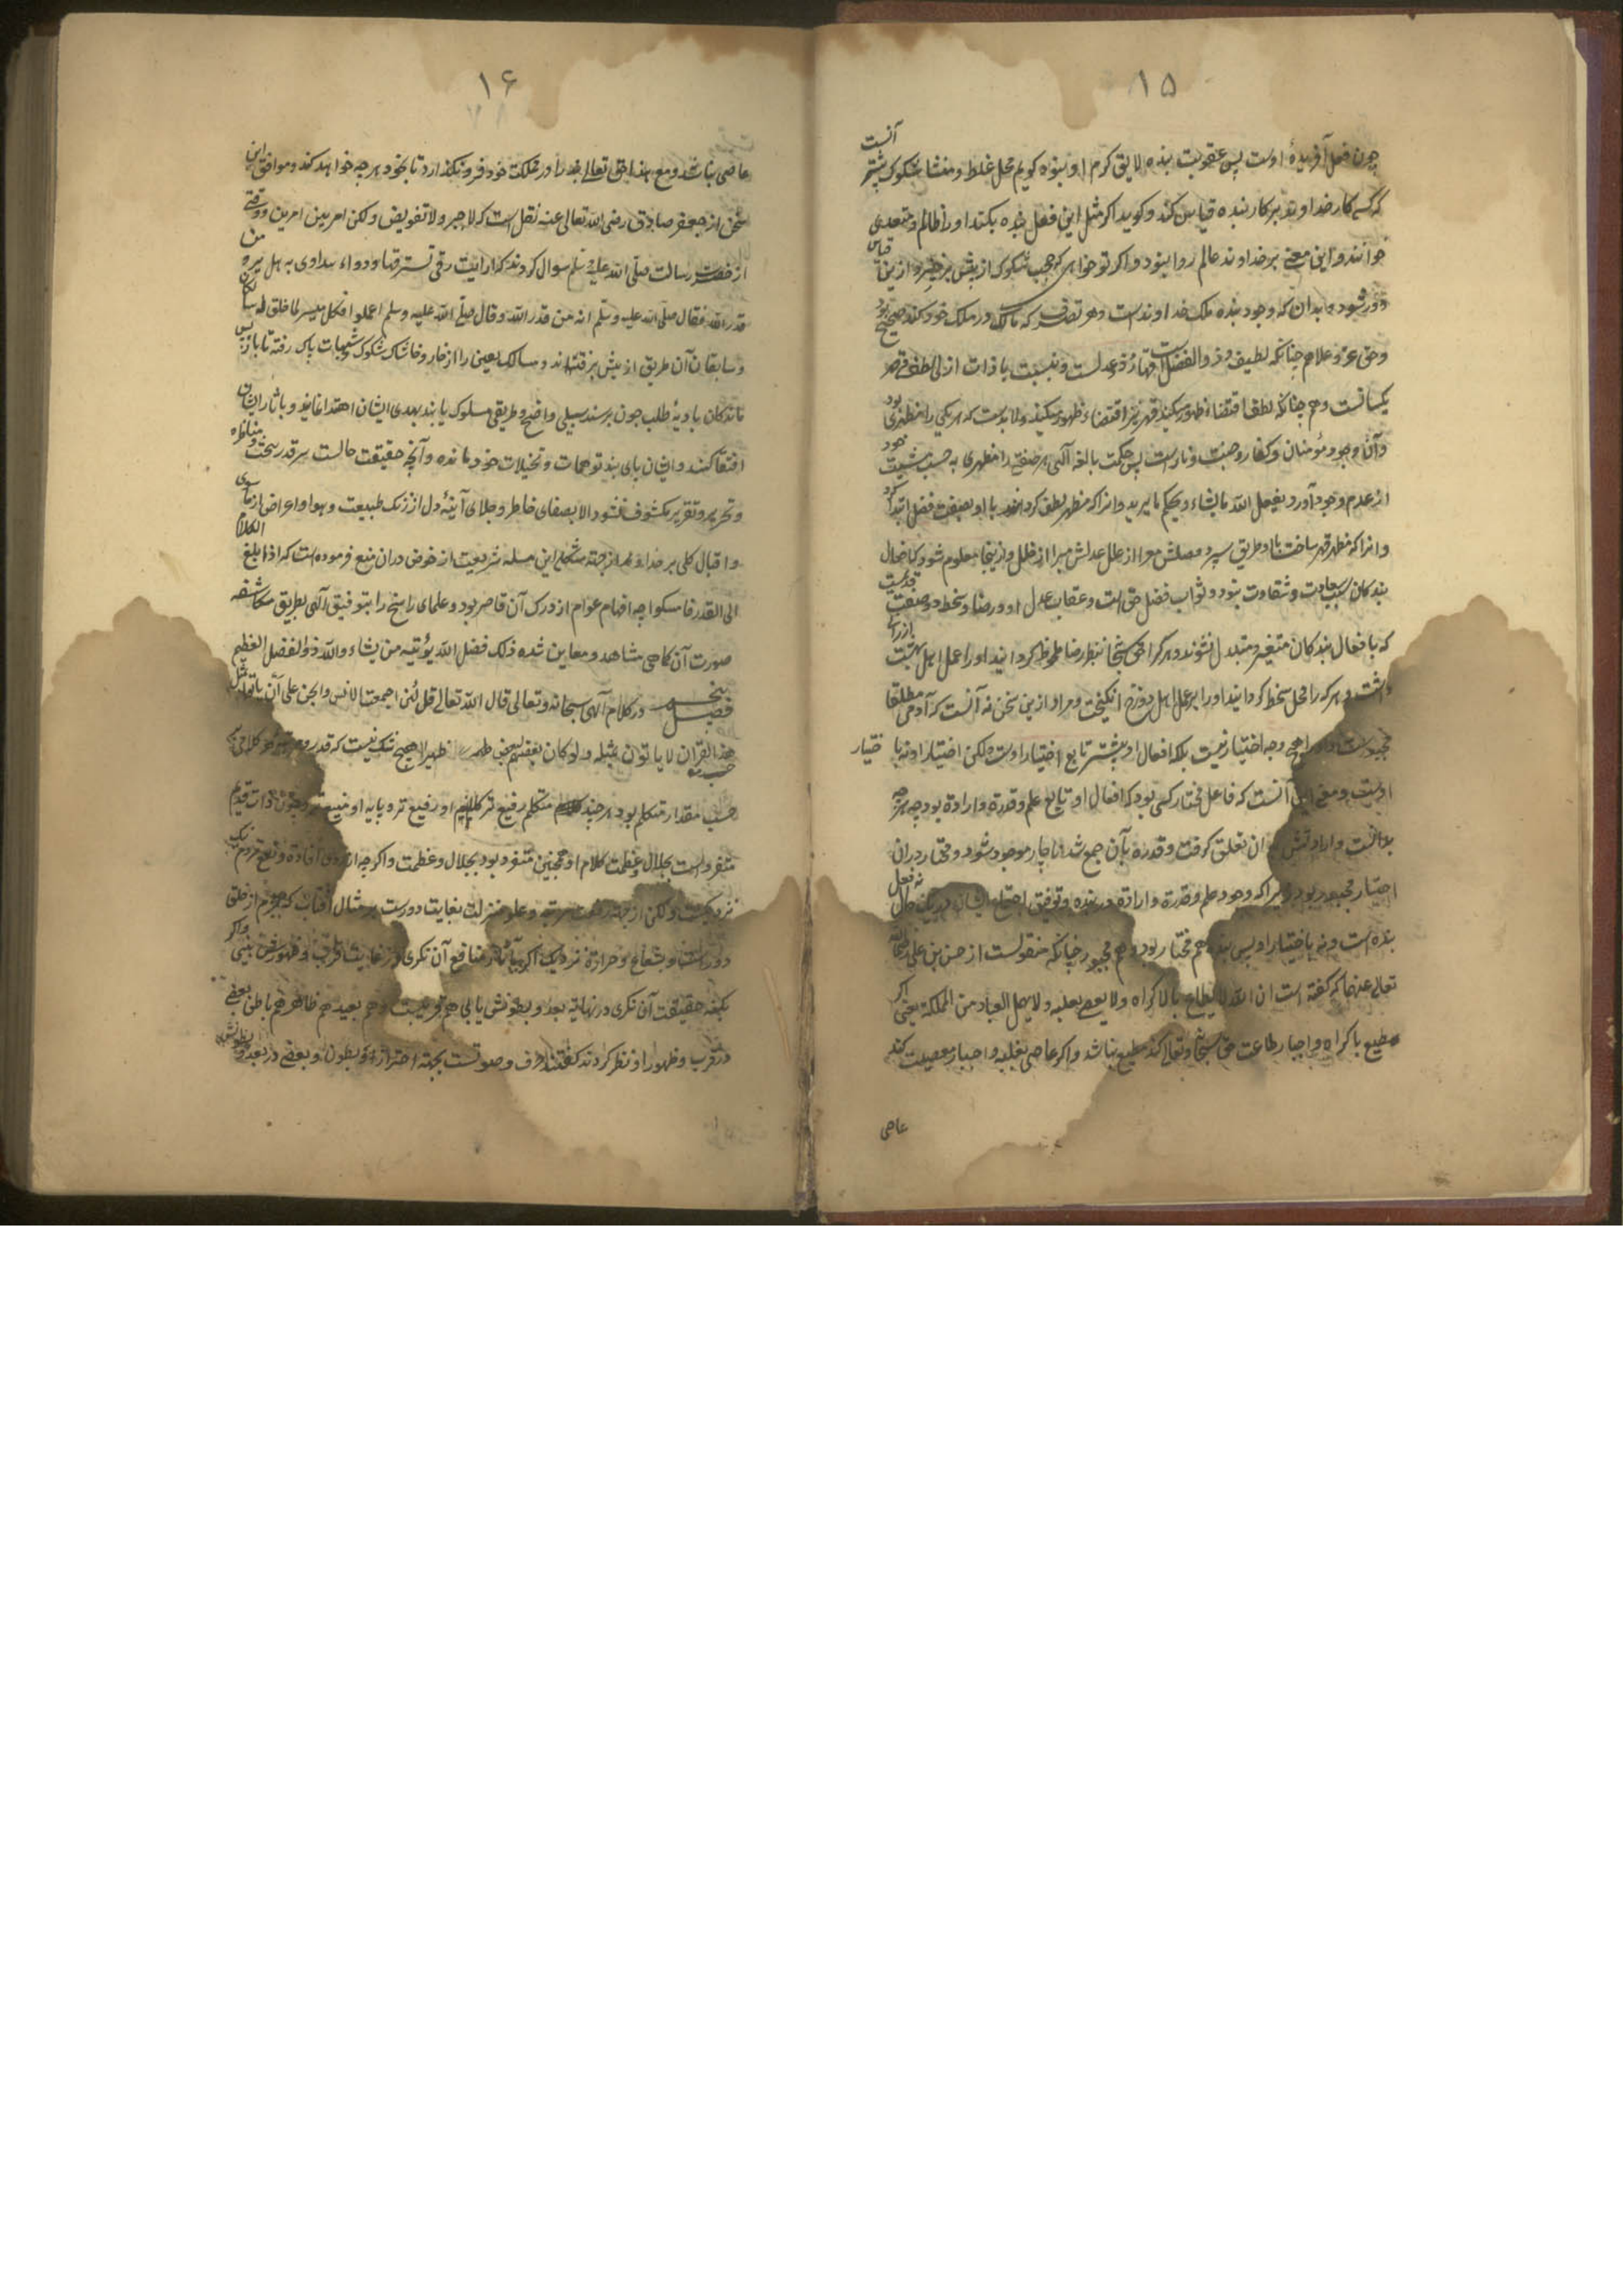 ۱۵
چون فعل آفریدهٔ اوست پس عقوبت بنده لایق کرم او نبود کویم محل غلط و منشأ شکوک بیشتر آنست
که کسی کار خداوند بر کار بنده قیاس کند و کوید اکر مثل این فعل بنده بکند او را ظالم و متعدی
خوانند و این معنی بر خداوند عالم روا نبود و اکر تو خواهی که حجب شکوک از پیش برخیزد و ازین قیاس
دور شود بدان که وجود بنده ملک خداوند است و هر تصرف که مالک در ملک خود کند صحیح بود
و حق عز و علا هم چنانکه لطیف و ذو الفضل است قهار و ذو عدلست و نسبت با ذات ازلی لطف و قهر
یکسانست و هم چنانکه لطف اقتضاء ظهور میکند قهر نیز اقتضاء ظهور میکند و لابدست که هر یکی را مظهری بود
و آن وجود مؤمنان و کفار و جنت و نارست پس حکمت بالغه آلهی هر صفتی را مظهری به حسب مشیت خود
از عدم وجود آورد یفعل الله ما یشاء و یحکم ما یرید و انرا که مظهر لطف کردانید با او بصفت فضل ابتدا کرد
و انرا که مظهر قهر ساخت با او طریق عدل سپرد فضلش معرا از علل عدلش مبرا از ظلل و ازینجا معلوم شود که افعال
بندکان سبب سعادت و شقاوت نبود و ثواب فضل حق است و عقاب عدل او و رضا و سخط دو صفت قدیمست
که بافعال بندکان متغیر و متبدل نشوند و هرکرا حق سبحانه بنظر رضا ملحوظ کردانید او را عمل اهل بهشت ارزانی
داشت و هر که را محل سخط کردانید او را بر عمل اهل دوزخ انکیخت و مراد ازین سخن نه آنست که آدمی مطلقا
مجبورست و او را هیچ وجه اختیار نیست بلکه افعال او بیشتر تابع اختیار اوست ولکن اختیار او نه با ختیار
اوست و معنی این آنست که فاعل مختار کسی بود که افعال او تابع علم و قدرة و ارادة بود چه هرچه
بدانست و ارادتش بدان تعلق کرفت و قدرة بآن جمع شد ناچار موجود شود و مختار دران
اختیار مجبور بود زیرا که وجود علم و قدرة و ارادة در بنده و توفیق اجتماع ایشان در یک حال نه فعل
بنده است و نه باختیار او پس بنده هم مختار بود و هم مجبور چنانکه منقولست از حسن بن علی رضی الله
تعالی عنهما که کفته است ان الله لا یطاع بالاکراه ولا یعصی بغلبه ولا یهمل العباد من المملکة یعنی اکر
مطیع باکراه و اجبار طاعت حق سبحانه و تعالی کند مطیع نباشد و اکر عاصی بغلبه و اجبار معصیت کند
عاصی
۱۶
عاصی نباشد و مع هذا حق تعالی بنده را در مملکت خود فرو نکذارد تا بخود هرچه خواهد کند و موافق این
سخن از جعفر صادق رضی الله تعالی عنه نقل است که لا جبر ولا تفویض ولکن امر بین امرین و وقتی
از حضرت رسالت صلی الله علیه و سلم سوال کردند که ارایت رقی نسترقها و دواء نتداوی به هل یرد من
قدر الله فقال صلی الله علیه وسلم انه من قدر الله و قال صلی الله علیه وسلم اعملوا فکل میسر لما خلق له
و سابقان آن طریق از پیش برفته‌اند و مسالک یقین را از خار و خاشاک شکوک و شبهات پاک رفته تا باز پس
ماندکان بادیهٔ طلب چون برسند سبیلی واضح و طریقی مسلوک یابند بهدی ایشان اهتدا نمایند و باثار ایشان
اقتفا کنند و ایشان پای بند توهمات و تخیلات خود مانده و آنچه حقیقت حالست سر قدر ببحث و مناظره
و تحریر و تقریر مکشوف نشود الا بصفای خاطر و جلای آینهٔ دل از زنک طبیعت و هوا و اعراض از ما سوی
و اقبال کلی بر خدا و هم از جهة مشکلی این مسله شریعت از خوض دران منع فرموده است که اذا بلغ الکلام
الی القدر فامسکوا چه افهام عوام از درک آن قاصر بود و علمای راسخ را بتوفیق آلهی بطریق مکاشفه
صورت آن کاهی مشاهد و معاین شده ذلک فضل الله یؤتیه من یشاء والله ذو الفضل العظیم
فصل پنجم در کلام آلهی سبحانه و تعالی قال الله تعالی قل لئن اجتمعت الانس والجن علی أن یاتوا بمثل
هذا القران لا یاتون بمثله ولو کان بعضهم لبعض ظهیرا هیچ شک نیست که قدر و مرتبهٔ هر کلامی
حسب مقدار متکلم بود هر چند متکلم رفیع تر کلام او رفیع تر و پایه او منیع تر و چون ذات قدیم
متفرد است بجلال و عظمت کلام او همچنین متفرد بود بجلال و عظمت و اکرچه از روی افادة و نفع بمردم نزدیک
نزدیکست ولکن از جهة رفعت مرتبه و علو منزلت بغایت دورست بر مثال آفتاب که بجرم از خلق
دورست و بشعاع و حرارة نزدیک اکر بآثار و منافع آن نکری در غایت قرب و ظهورش بینی و اکر
بکنه حقیقت آن نکری در نهایة بعد و بطونش یابی هم قریبست و هم بعید هم ظاهر هم باطن بعضی
در قرب و ظهور او نظر کردند کفتند حرف و صوتست بجهة احتراز از و بعضی در بعد و بطونش